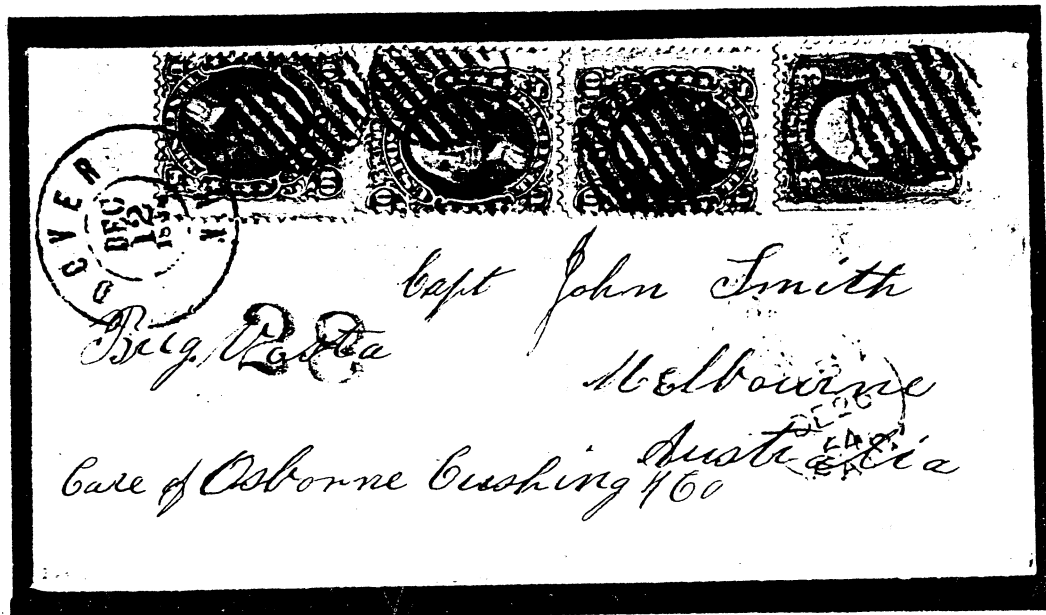 DOVER N.Y
DEC
12
Capt John Smith
Brig.
28
Melbourne
Australia
Care of Osborne Cushing & Co